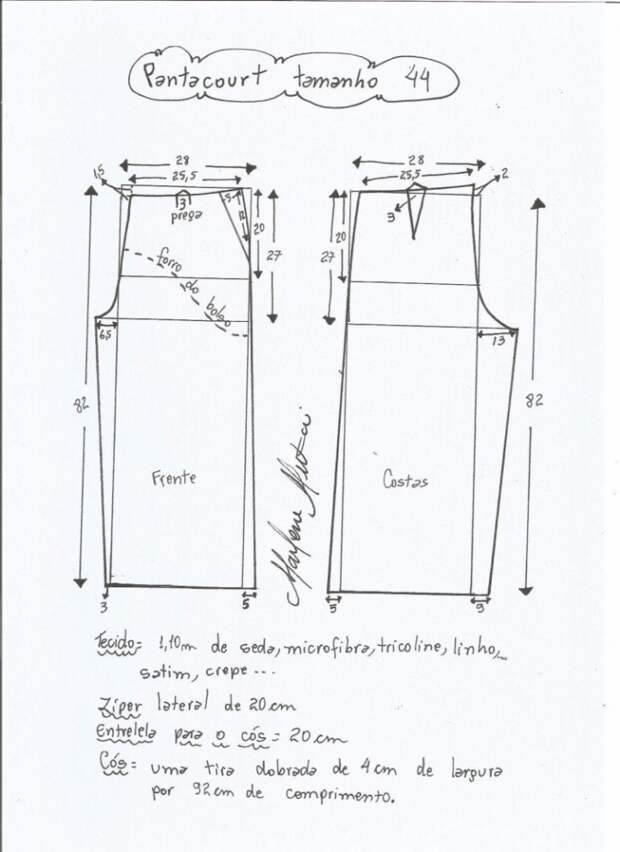 Pantacourt tamanho 44
28
25,5
1,5
3
prega
5
12
20
27
forro
do
bolso
65
82
Frente
3
5
28
25,5
2
3
20
27
13
82
Costas
5
9
Tecido = 1,10m de seda, microfibra, tricoline, linho,
satim, crepe ...
Zíper lateral de 20 cm
Entretela para o cós = 20 cm
Cós = uma tira dobrada de 4 cm de largura
por 92 cm de comprimento.